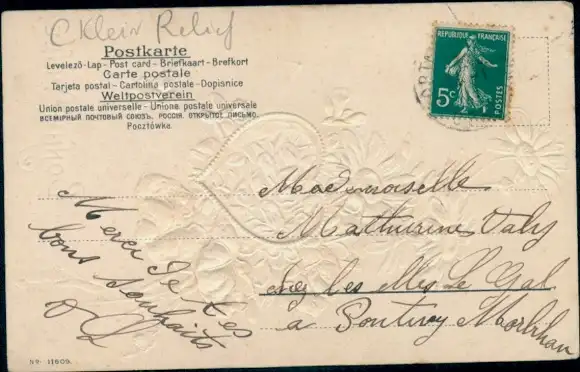 C Klein Relief
Postkarte
Levelező-Lap - Post card - Briefkaart - Brefkort
Carte postale
Tarjeta postal - Cartolina postale - Dopisnice
Weltpostverein
Union postale universelle - Unione postale universale
ВСЕМІРНЫЙ ПОЧТОВЫЙ СОЮЗЪ. РОССІЯ. ОТКРЫТОЕ ПИСЬМО.
Pocztówka.
REPUBLIQUE FRANÇAISE
5c
POSTES
Mademoiselle
Mathurine Valy
chez les Mlles Le Gal
à Pontivy Morbihan
Merci de tes
bons souhaits
No. 11609.